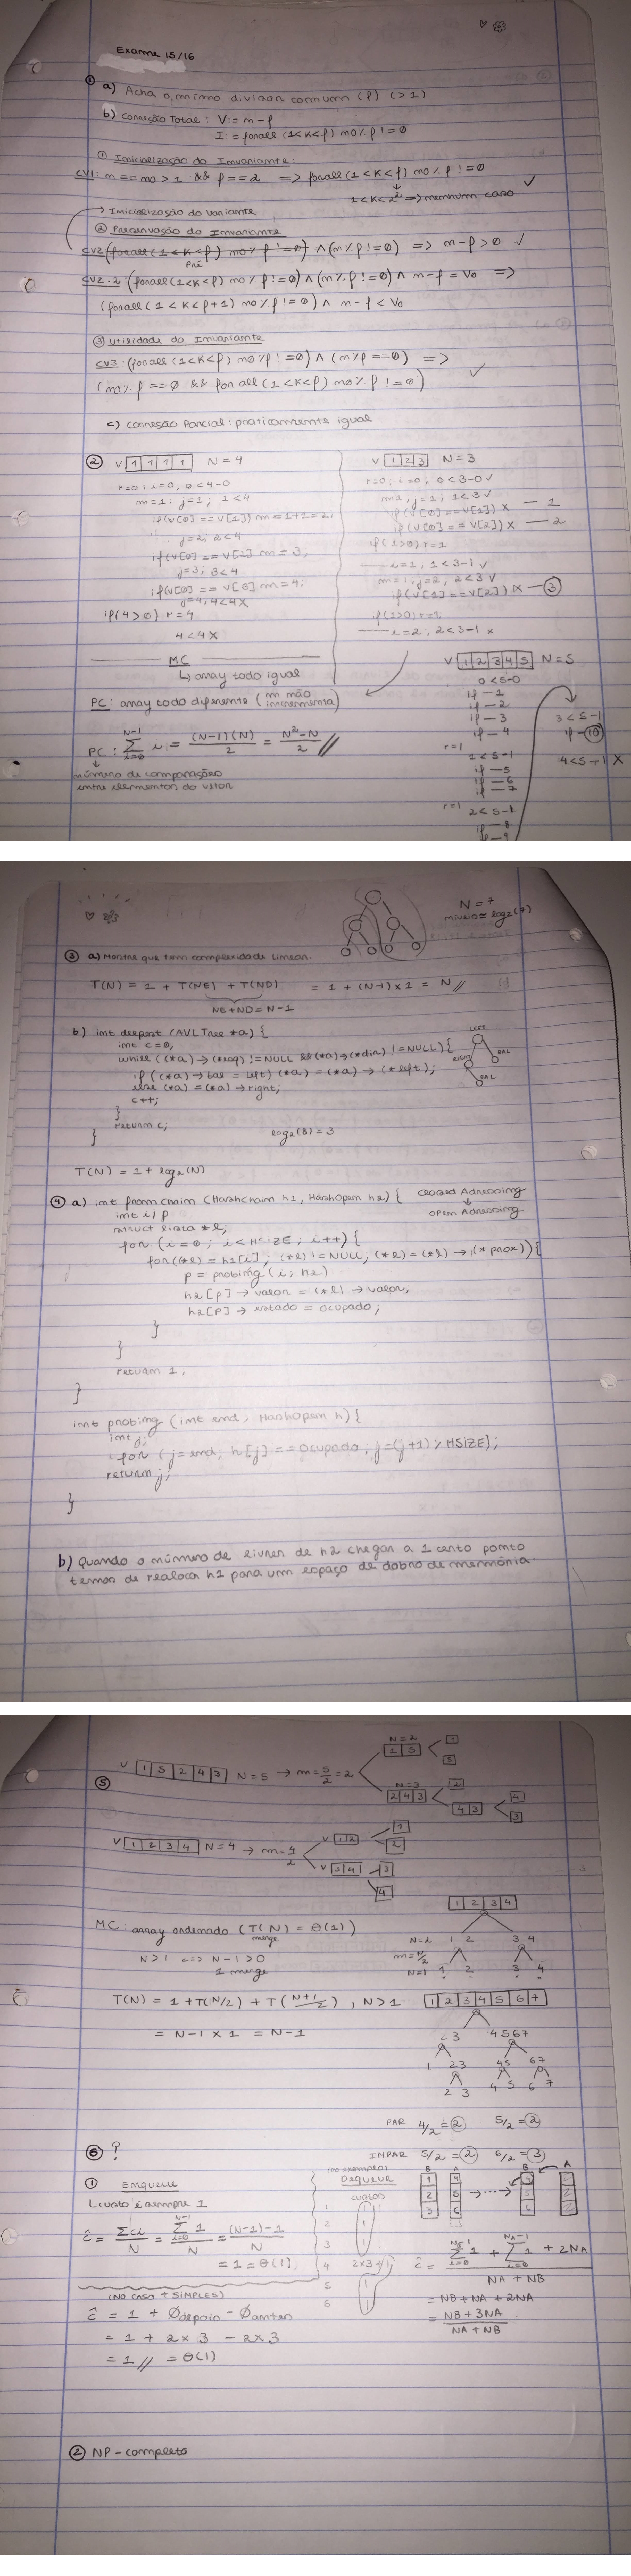 Exame 15/16
① a) Acha o mínimo divisor comum (p) (>1)
b) Correção Total: V:= m-p
I:= forall (1<K<p) m0 % p != 0
① Inicialização do Invariante:
CV1: m == m0 > 1 && p == 2 => forall (1<K<p) m0 % p != 0 ✓
1<K<2 => nenhum caso
→ Inicialização do variante
② Preservação do Invariante
CV2 (forall (1<K<p) m0 % p != 0) ∧ (m % p != 0) => m-p > 0 ✓
Pré
CV2.2 (forall (1<K<p) m0 % p != 0) ∧ (m % p != 0) ∧ m-p = V0 =>
(forall (1<K<p+1) m0 % p != 0) ∧ m-p < V0
③ Utilidade do Invariante
CV3: (forall (1<K<p) m0 % p != 0) ∧ (m % p == 0) =>
(m0 % p == 0 && forall (1<K<p) m0 % p != 0) ✓
c) Correção Parcial: praticamente igual
② V 1 1 1 1 N = 4
r=0; i=0, 0<4-0
m=1; j=1; 1<4
if(v[0] == v[1]) m = 1+1 = 2;
j=2; 2<4
if(v[0] == v[2]) m = 3;
j=3; 3<4
m = 4;
j=4; 4<4 X
if(4>0) r=4
4<4 X
MC
↳ array todo igual
PC: array todo diferente (m não incrementa)
PC: N-1 Σ i=0 i = (N-1)(N) / 2 = N²-N / 2 //
número de comparações
entre elementos do vetor
V 1 2 3 N = 3
r=0; i=0, 0<3-0 ✓
m=1, j=1; 1<3 ✓
if(v[0] == v[1]) X — 1
if(v[0] == v[2]) X — 2
if(1>0) r=1
i=1, 1<3-1 ✓
m=1, j=2, 2<3 ✓
if(v[1] == v[2]) X — ③
i=2, 2<3-1 X
V 1 2 3 4 5 N = 5
0<5-0
if — 1
if — 2
if — 3
if — 4
r=1
1<5-1
if — 5
if — 6
if — 7
r=1 2<5-1
if — 8
if — 9
3<5-1
if — ⑩
4<5-1 X
N = 7
③ a) Mostre que tem complexidade linear.
T(N) = 1 + T(NE) + T(ND) = 1 + (N-1) x 1 = N //
NE+ND = N-1
b) int deepest (AVLTree *a) {
int c = 0;
while ((*a) → (*esq) != NULL && (*a) → (*dir) != NULL) {
if ((*a) → bal = left) (*a) = (*a) → (*left);
else (*a) = (*a) → right;
c++;
}
return c;
}
LEFT
RIGHT
BAL
BAL
log₂(8) = 3
T(N) = 1 + log₂(N)
④ a) int fromChain (HashChain h1, HashOpen h2) {
Closed Adressing
↓
Open Adressing
int i, p
struct lista *l;
for (i = 0; i < HSIZE; i++) {
for((*l) = h1[i]; (*l) != NULL; (*l) = (*l) → (*prox)) {
p = probing (i, h2)
h2[p] → valor = (*l) → valor;
h2[p] → estado = ocupado;
}
}
return 1;
}
int probing (int end, HashOpen h) {
int j;
for (j = end; h[j] == Ocupado; j = (j+1) % HSIZE);
return j;
}
b) Quando o número de livres de h2 chegar a 1 certo ponto
temos de realocar h1 para um espaço de dobro de memória.
⑤ V 1 5 2 4 3 N = 5 → m = 5/2 = 2
N = 2
1 5
1
5
N = 3
2 4 3
2
4 3
4
3
V 1 2 3 4 N = 4 → m = 4/2
V 1 2
1
2
V 3 4
3
4
MC: array ordenado (T(N) = Θ(1))
merge
N>1 <=> N-1>0
1 merge
1 2 3 4
N=2 1 2 3 4
m = N/2
N=1 1 2 3 4
T(N) = 1 + T(N/2) + T(N+1/2), N>1
= N-1 x 1 = N-1
1 2 3 4 5 6 7
4 5 6 7
1 23 45 67
2 3 4 5 6 7
PAR 4/2 = ② 5/2 = ②
IMPAR 5/2 = ② 6/2 = ③
⑥ ?
① Enqueue
↳ custo é sempre 1
ĉ = Σci / N = N-1 Σ i=0 1 / N = (N-1)-1 / N
= 1 = Θ(1)
(NO CASO + SIMPLES)
ĉ = 1 + Ødepois - Øantes
= 1 + 2x3 - 2x3
= 1 // = Θ(1)
(no exemplo)
Dequeue
custos
1 1
2 1
3 1
4 2x3+1
5 1
6 1
B A
1 4
2 5
3 6
→ ····· →
B A
4
5
6
ĉ = NB-1 Σ i=0 1 + NA-1 Σ i=0 1 + 2NA / NA + NB
= NB + NA + 2NA
= NB + 3NA / NA + NB
② NP-completo